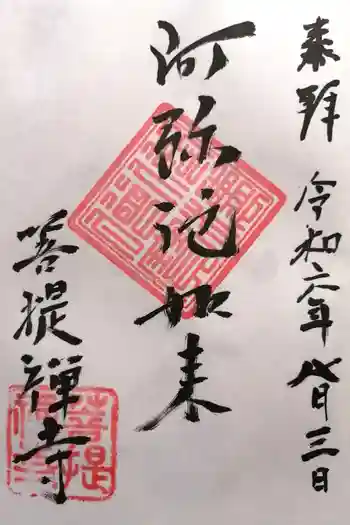 奉拝 令和六年 八月三日
阿弥陀如来
菩提禅寺